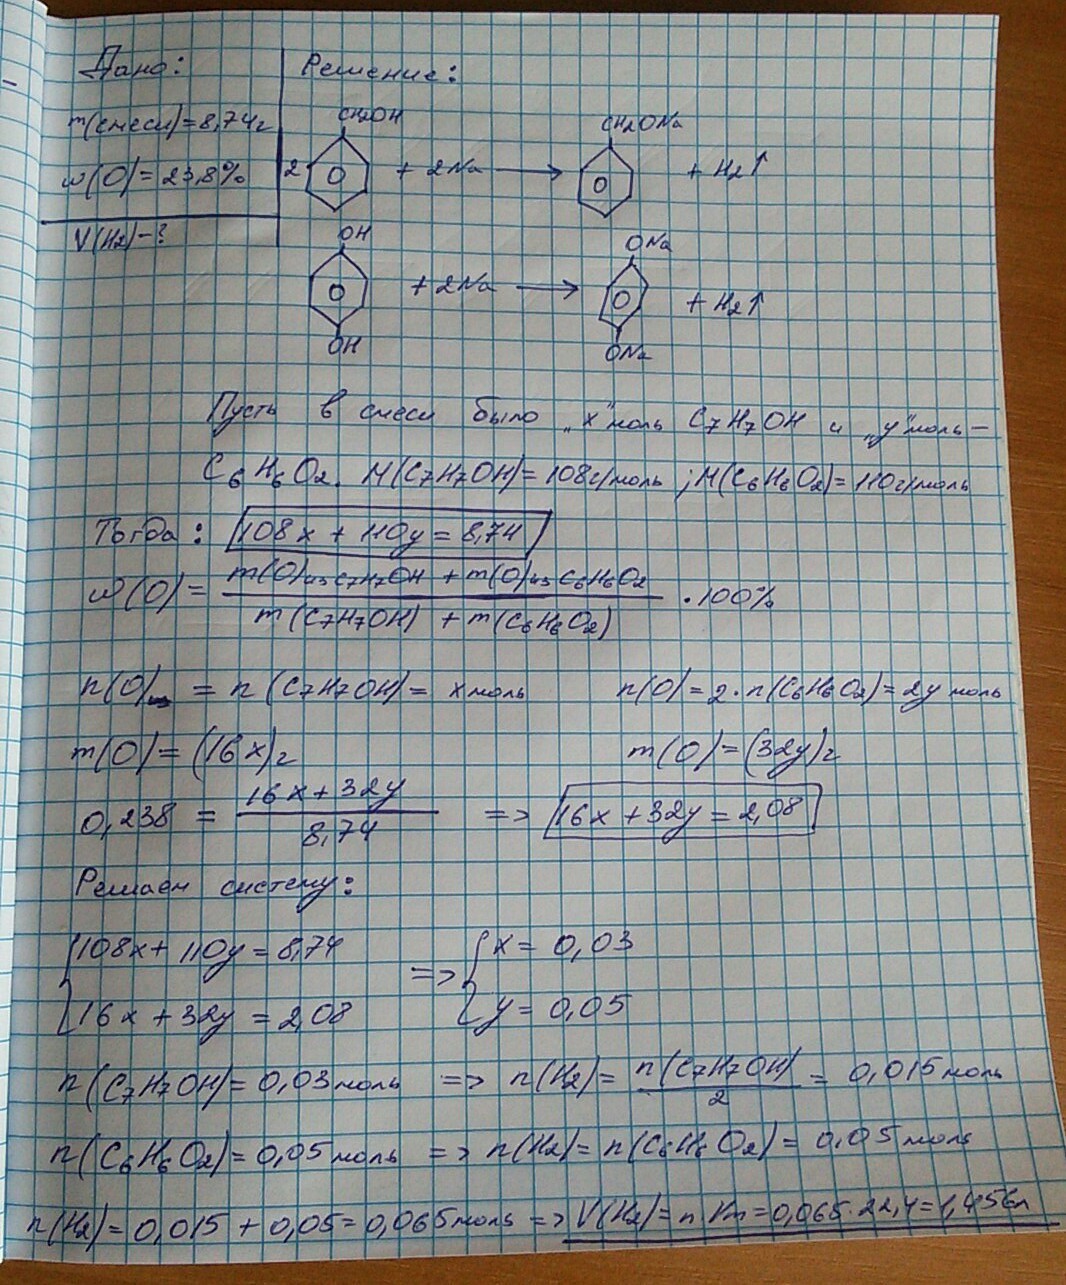 Дано:
Решение:
m(смеси)=8,74г
ω(O)=23,8%
V(H2)-?
CH2OH
2 + 2Na → + H2↑
CH2ONa
OH
+ 2Na → + H2↑
OH
ONa
ONa
Пусть в смеси было „x" моль C7H7OH и „y" моль –
C6H6O2. M(C7H7OH)=108г/моль ; M(C6H6O2)=110г/моль
Тогда: 108x + 110y = 8,74
ω(O)= m(O)из C7H7OH + m(O)из C6H6O2 / m(C7H7OH) + m(C6H6O2) · 100%
n(O) = n(C7H7OH)= x моль n(O)=2·n(C6H6O2)=2y моль
m(O)=(16x)г m(O)=(32y)г
0,238 = 16x+32y / 8,74 => 16x+32y=2,08
Решаем систему:
{108x+110y=8,74 => {x=0,03
{16x+32y=2,08 {y=0,05
n(C7H7OH)=0,03моль => n(H2)= n(C7H7OH) / 2 = 0,015моль
n(C6H6O2)=0,05моль => n(H2)=n(C6H6O2)=0,05моль
n(H2)=0,015+0,05=0,065моль => V(H2)=n·Vm=0,065·22,4=1,456л